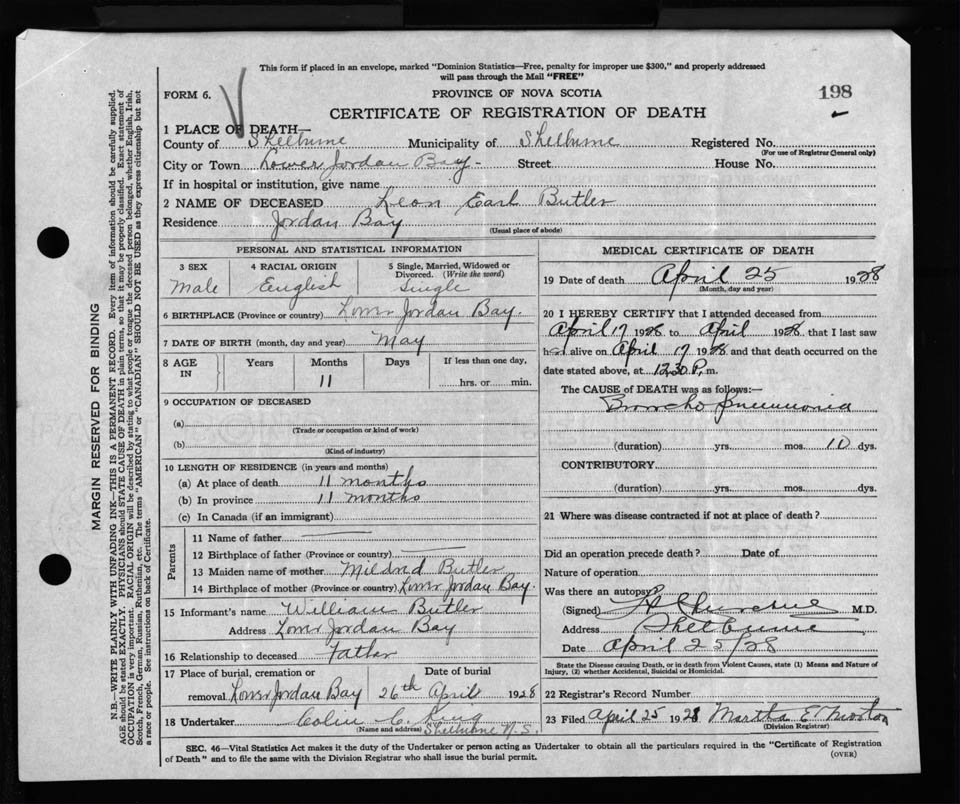 This form if placed in an envelope, marked "Dominion Statistics—Free, penalty for improper use $300," and properly addressed
will pass through the Mail "FREE"
FORM 6.
PROVINCE OF NOVA SCOTIA
198
CERTIFICATE OF REGISTRATION OF DEATH
1 PLACE OF DEATH—
County of Shelburne Municipality of Shelburne Registered No.
(For use of Registrar General only)
City or Town Lower Jordan Bay - Street House No.
If in hospital or institution, give name
2 NAME OF DECEASED Leon Earl Butler
Residence Jordan Bay
(Usual place of abode)
PERSONAL AND STATISTICAL INFORMATION
3 SEX 4 RACIAL ORIGIN 5 Single, Married, Widowed or Divorced. (Write the word)
Male English Single
6 BIRTHPLACE (Province or country) Lower Jordan Bay.
7 DATE OF BIRTH (month, day and year) May
8 AGE IN Years Months Days If less than one day,
11 hrs. or min.
9 OCCUPATION OF DECEASED
(a)
(Trade or occupation or kind of work)
(b)
(Kind of industry)
10 LENGTH OF RESIDENCE (in years and months)
(a) At place of death 11 months
(b) In province 11 months
(c) In Canada (if an immigrant)
Parents
11 Name of father
12 Birthplace of father (Province or country)
13 Maiden name of mother Mildred Butler
14 Birthplace of mother (Province or Country) Lower Jordan Bay.
15 Informant's name William Butler
Address Lower Jordan Bay
16 Relationship to deceased Father
17 Place of burial, cremation or Date of burial
removal Lower Jordan Bay 26th April 1928
18 Undertaker Colin C. King
(Name and address) Shelburne N.S.
MEDICAL CERTIFICATE OF DEATH
19 Date of death April 25 1928
(Month, day and year)
20 I HEREBY CERTIFY that I attended deceased from
April 17 1928 to April 1928 that I last saw
h alive on April 17 1928 and that death occurred on the
date stated above, at 12.30 P. m.
The CAUSE of DEATH was as follows:—
Broncho Pneumonia
(duration) yrs. mos. 10 dys.
CONTRIBUTORY
(duration) yrs. mos. dys.
21 Where was disease contracted if not at place of death?
Did an operation precede death? Date of
Nature of operation
Was there an autopsy?
(Signed) M.D.
Address Shelburne
Date April 25/28
State the Disease causing Death, or in death from Violent Causes, state (1) Means and Nature of
Injury, (2) whether Accidental, Suicidal or Homicidal.
22 Registrar's Record Number
23 Filed April 25 1928 Martha E
(Division Registrar)
SEC. 46—Vital Statistics Act makes it the duty of the Undertaker or person acting as Undertaker to obtain all the particulars required in the "Certificate of Registration
of Death" and to file the same with the Division Registrar who shall issue the burial permit.
(OVER)
MARGIN RESERVED FOR BINDING
N.B.—WRITE PLAINLY WITH UNFADING INK—THIS IS A PERMANENT RECORD. Every item of information should be carefully supplied.
AGE should be stated EXACTLY. PHYSICIANS should STATE CAUSE OF DEATH in plain terms, so that it may be properly classified. Exact statement of
OCCUPATION is very important. RACIAL ORIGIN will be described by stating to what people or tongue the deceased person belonged, whether English, Irish,
Scotch, French, German, Russian, Ruthenian, etc. The terms "AMERICAN" or "CANADIAN" SHOULD NOT BE USED as they express citizenship but not
a race or people. See instructions on back of Certificate.